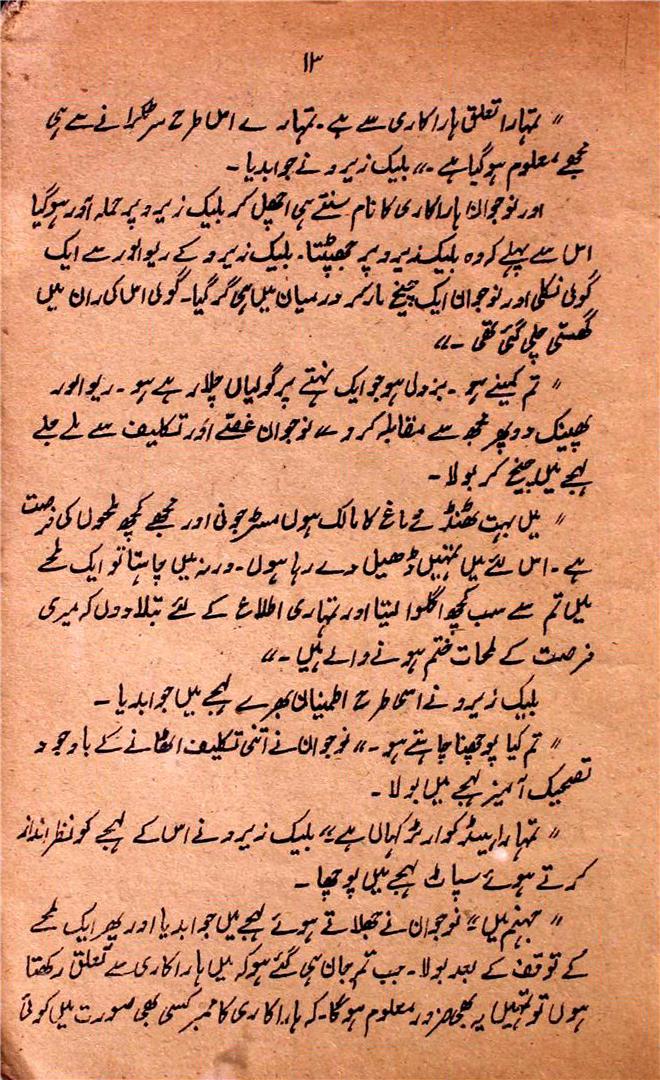 ۱۳
" تمہارا تعلق ہاراکاری سے ہے۔ تمہارے اس طرح سر ٹکرانے سے ہی
مجھے معلوم ہو گیا ہے۔" بلیک زیرو نے جواب دیا۔
اور نوجوان ہاراکاری کا نام سنتے ہی اچھل کر بلیک زیرو پر حملہ آور ہو گیا
اس سے پہلے کہ وہ بلیک زیرو پر جھپٹتا۔ بلیک زیرو کے ریوالور سے ایک
گولی نکلی اور نوجوان ایک چیخ مار کر درمیان میں ہی گر گیا۔ گولی اس کی ران میں
گھستی چلی گئی تھی ۔"
" تم کمینے ہو ۔ بزدل ہو جو ایک نہتے پر گولیاں چلا رہے ہو ۔ ریوالور
پھینک دو پھر مجھ سے مقابلہ کرو " نوجوان غصے اور تکلیف سے ملے جلے
لہجے میں چیخ کر بولا ۔
" میں بہت ٹھنڈے دماغ کا مالک ہوں مسٹر جونی اور مجھے کچھ لمحوں کی فرصت
ہے ۔ اس لئے میں تمہیں ڈھیل دے رہا ہوں ۔ ورنہ میں چاہتا تو ایک لمحے
میں تم سے سب کچھ اگلوا لیتا اور تمہاری اطلاع کے لئے بتلا دوں کہ میری
فرصت کے لمحات ختم ہونے والے ہیں ۔"
بلیک زیرو نے اسی طرح اطمینان بھرے لہجے میں جواب دیا ۔
" تم کیا پوچھنا چاہتے ہو ۔" نوجوان نے اتنی تکلیف اٹھانے کے باوجود
تضحیک آمیز لہجے میں بولا ۔
" تمہارا ہیڈ کوارٹر کہاں ہے " بلیک زیرو نے اس کے لہجے کو نظر انداز
کرتے ہوئے سپاٹ لہجے میں پوچھا ۔
" جہنم میں " نوجوان نے جھلاتے ہوئے لہجے میں جواب دیا اور پھر ایک لمحے
کے توقف کے بعد بولا ۔ جب تم جان ہی گئے ہو کہ میں ہاراکاری سے تعلق رکھتا
ہوں تو تمہیں یہ بھی ضرور معلوم ہوگا ۔ کہ ہاراکاری کا ممبر کسی بھی صورت میں کوئی